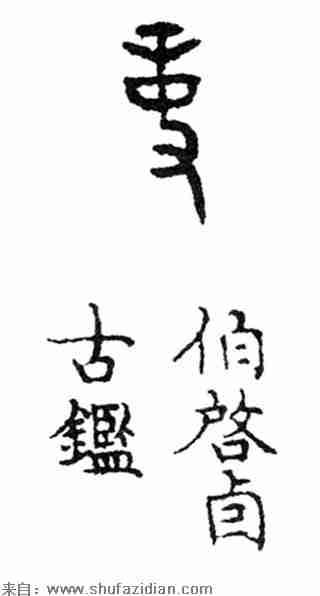 伯啓卣
古鑑
来自：www.shufazidian.com